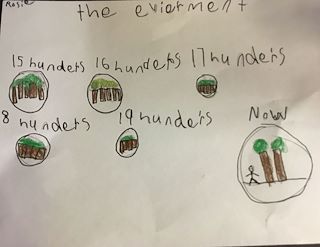 Rosie
the evierment
15 hunders 16 hunders 17 hunders
8 hunders 19 hunders
Now